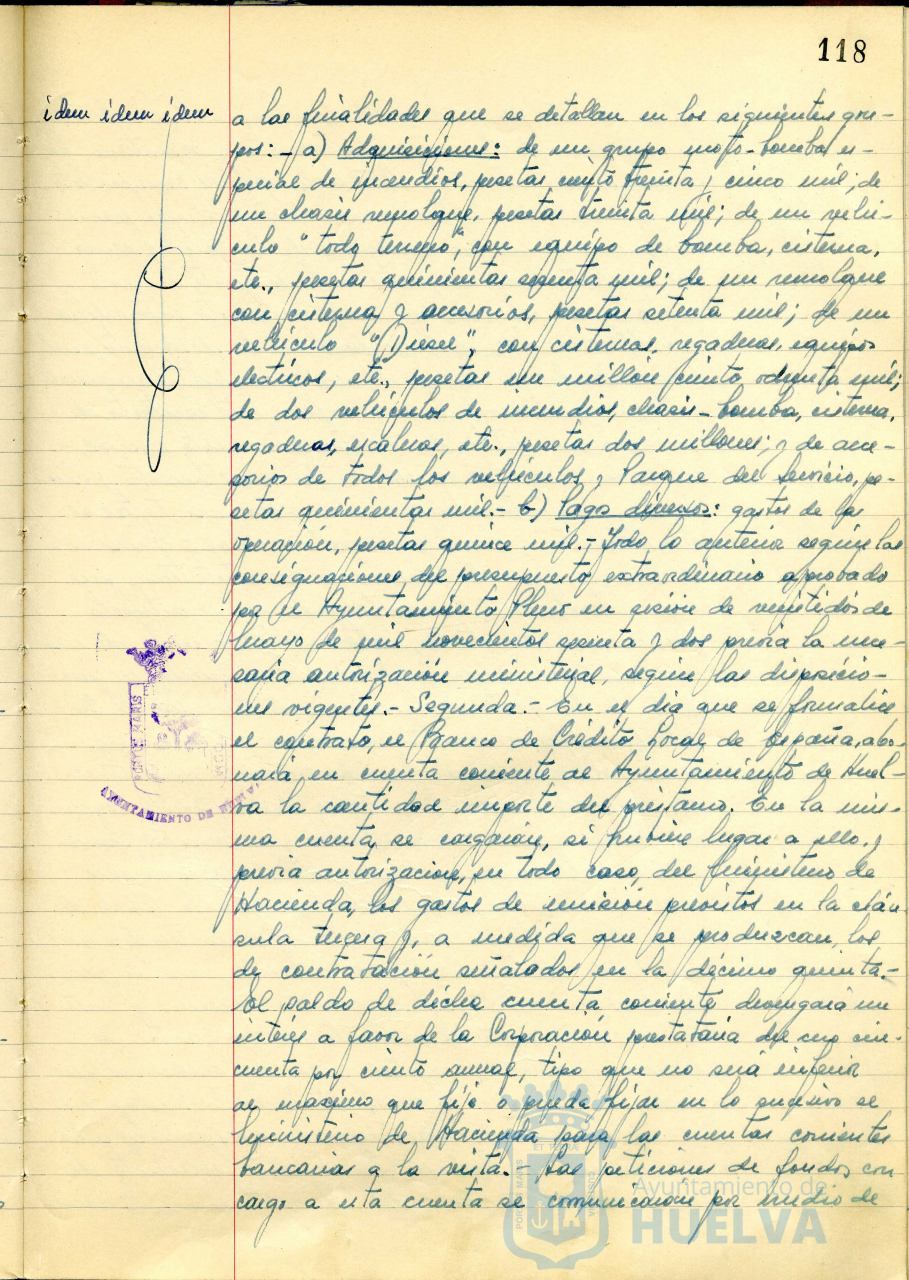 118
idem idem idem
a las finalidades que se detallan en los siguientes gru-
pos: - a) Adquisiciones: de un grupo moto-bomba es-
pecial de incendios, pesetas ciento treinta y cinco mil; de
un chasis remolque, pesetas treinta mil; de un vehí-
culo "todo terreno", con equipo de bomba, cisterna,
etc., pesetas quinientas sesenta mil; de un remolque
con cisterna y accesorios, pesetas setenta mil; de un
vehículo "Diesel", con cisternas, regaderas, equipos
electricos, etc., pesetas un millón ciento ochenta mil;
de dos vehículos de incendios, chasis-bomba, cisterna,
regaderas, escaleras, etc., pesetas dos millones; y de acce-
sorios de todos los vehículos y Parque del Servicio, pe-
setas quinientas mil.- b) Pagos diversos: gastos de la
operación, pesetas quince mil.- Todo lo anterior según las
consignaciones del presupuesto extraordinario aprobado
por el Ayuntamiento Pleno en sesión de veintidós de
mayo de mil novecientos sesenta y dos previa la nece-
saria autorización ministerial, según las disposicio-
nes vigentes.- Segunda.- En el dia que se formalice
el contrato, el Banco de Crédito Local de España, abo-
nará en cuenta corriente al Ayuntamiento de Huel-
va la cantidad importe del préstamo. En la mis-
ma cuenta se cargarán, si hubiere lugar a ello, y
previa autorización, en todo caso, del Ministerio de
Hacienda, los gastos de emisión previstos en la cláu-
sula tercera y, a medida que se produzcan, los
de contratación señalados en la décimo quinta.-
El saldo de dicha cuenta corriente devengará un
interes a favor de la Corporación prestataria del uno cin-
cuenta por ciento anual, tipo que no será inferior
al maximo que fije o pueda fijar en lo sucesivo el
Ministerio de Hacienda para las cuentas corrientes
bancarias a la vista.- Las peticiones de fondos con
cargo a esta cuenta se comunicarán por medio de
PORTUS MARIS
AYUNTAMIENTO DE HUELVA
Ayuntamiento de
HUELVA